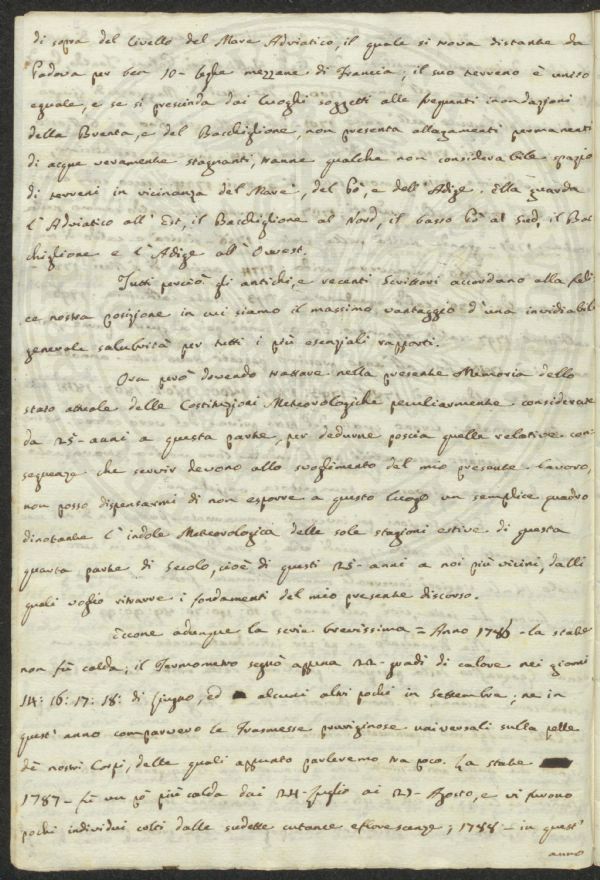 di sopra del livello del Mare Adriatico, il quale si trova distante da
Padova per ben 10- leghe mezzane di Francia; il suo terreno è unito
eguale, e se si prescinda dai luoghi soggetti alle frequenti inondazioni
della Brenta, e del Bacchiglione, non presenta allagamenti permanenti
di acque veramente stagnanti, tranne qualche non considerabile spazio
di terreni in vicinanza del Mare, del Pò, e dell' Adige. Ella guarda
l' Adriatico all' Est, il Bacchiglione al Nord, il basso Pò al Sud, il Bac
chiglione e l' Adige all' Owest.
Tutti perciò gli antichi, e recenti Scrittori accordano alla feli
ce nostra posizione in cui siamo il massimo vantaggio d' una invidiabil
generale salubrità per tutti i più esenziali rapporti.
Ora però dovendo trattare nella presente Memoria dello
stato attuale delle Costituzioni Meteorologiche peculiarmente considerate
da 25- anni a questa parte, per dedurne poscia quelle relative con-
seguenze che servir devono allo svoglimento del mio presente lavoro,
non posso dispensarmi di non esporre a questo luogo un semplice quadro
dinotante l' indole Meteorologica delle sole stagioni estive di questa
quarta parte di Secolo, cioè di questi 25- anni a noi più vicini, dalli
quali voglio ritrarre i fondamenti del mio presente discorso.
Eccone adunque la serie brevissima = Anno 1786 - la state
non fù calda; il Termometro segnò appena 22- gradi di calore nei giorni
14: 16: 17: 18: di Giugno, ed alcuni altri pochi in Settembre; ne in
quest' anno comparvero le Trasmesse pruriginose universali sulla pelle
dè nostri Corpi, delle quali appunto parleremo tra poco. La state
1787- fù un pò più calda dai 24- Luglio ai 29- Agosto, e vi furono
pochi individui colti dalle sudette cutanee eflorescenze; 1788 - in quest'
anno